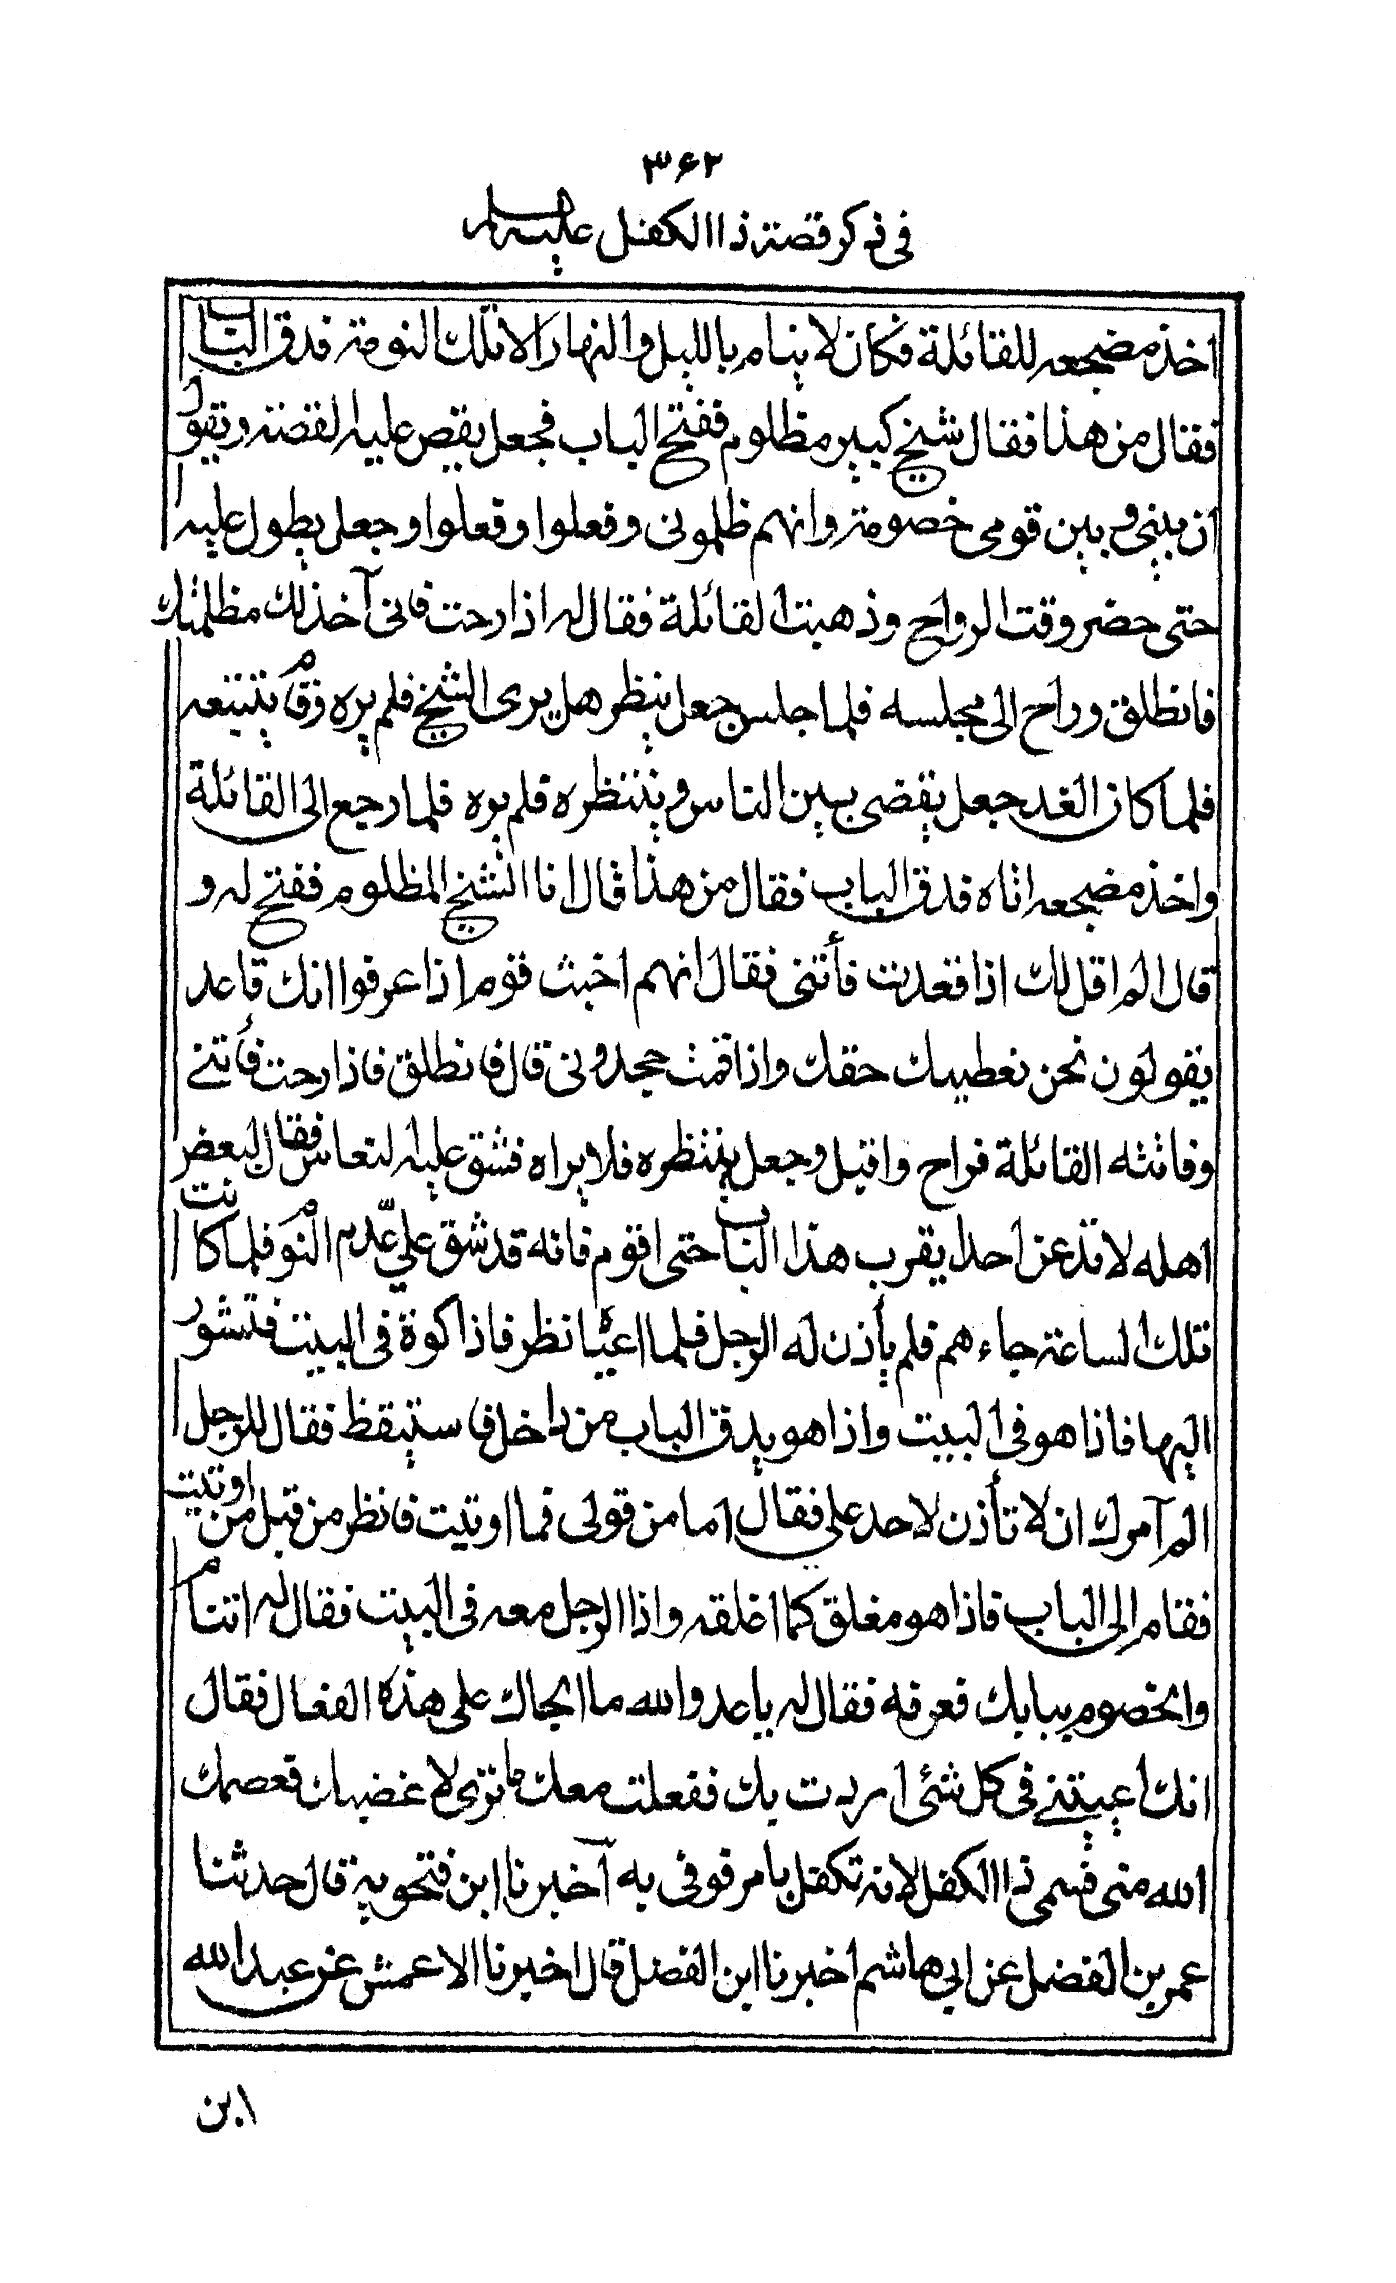 ۳۶۲
فى ذكر قصة ذا الكفل عليه السلام
اخذ مضجعه للقائلة فكان لا ينام بالليل والنهار الا تلك النومة فدق الباب
فقال من هذا فقال شيخ كبير مظلوم ففتح الباب فجعل يقص عليه القصة ويقول
ان بينى وبين قومى خصومة وانهم ظلمونى وفعلوا وفعلوا وجعل يطول عليه
حتى حضر وقت الرواح وذهبت القائلة فقال له اذا رحت فانى آخذ لك مظلمتك
فانطلق وراح الى مجلسه فلما جلس جعل ينظر هل يرى الشيخ فلم يره وقام يتبعه
فلما كان الغد جعل يقضى بين الناس وينتظره فلم يره فلما رجع الى القائلة
واخذ مضجعه اتاه فدق الباب فقال من هذا قال انا الشيخ المظلوم ففتح له و
قال الم اقل لك اذا قعدت فأتنى فقال انهم اخبث قوم اذا عرفوا انك قاعد
يقولون نحن نعطيك حقك واذا قمت جحدونى قال فانطلق فاذا رحت فأتنى
وفاتته القائلة فراح واقبل وجعل ينتظره فلا يراه فشق عليه النعاس فقال لبعض
اهله لا تدعن احدا يقرب هذا الباب حتى اقوم فانه قد شق علىّ عدم النوم فلما كانت
تلك الساعة جاءهم فلم يأذن له الرجل فلما اعياه نظر فاذا كوة فى البيت فتسور
اليها فاذا هو فى البيت واذا هو يدق الباب من داخل فاستيقظ فقال للرجل
الم آمرك ان لا تأذن لاحد على فقال اما من قولى فما اوتيت فانظر من قبل من اوتيت
فقام الى الباب فاذا هو مغلق كما اغلقه واذا الرجل معه فى البيت فقال له اتنام
والخصوم ببابك فعرفه فقال له يا عدو الله ما الجاك على هذه الفعال فقال
انك اعييتنى فى كل شئ اردت بك ففعلت معك ما ترى لاغضبك فعصمك
الله منى فسمى ذا الكفل لانه تكفل بامر فوفى به آخبرنا ابن فتحويه قال حدثنا
عمر بن الفضل عن ابى هاشم اخبرنا ابن الفضل قال اخبرنا الاعمش عن عبد الله
ابن